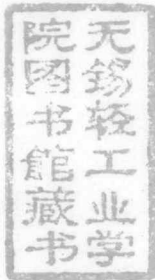 无锡轻工业学
院图书館藏书